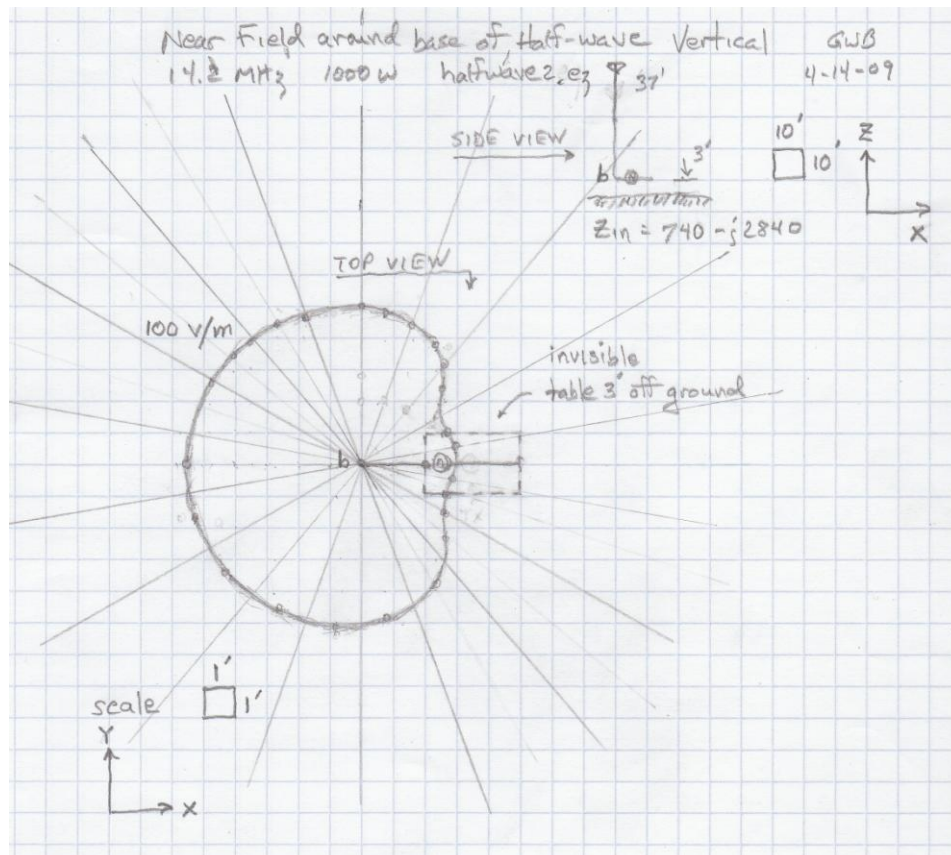 Near Field around base of Half-wave Vertical GWB
14.2 MHz 1000 W halfwave2.ez 4-14-09
37'
SIDE VIEW
b
3'
10'
10'
Z
X
Zin = 740 - j2840
TOP VIEW
100 V/m
invisible
table 3' off ground
b
scale
1'
1'
Y
X